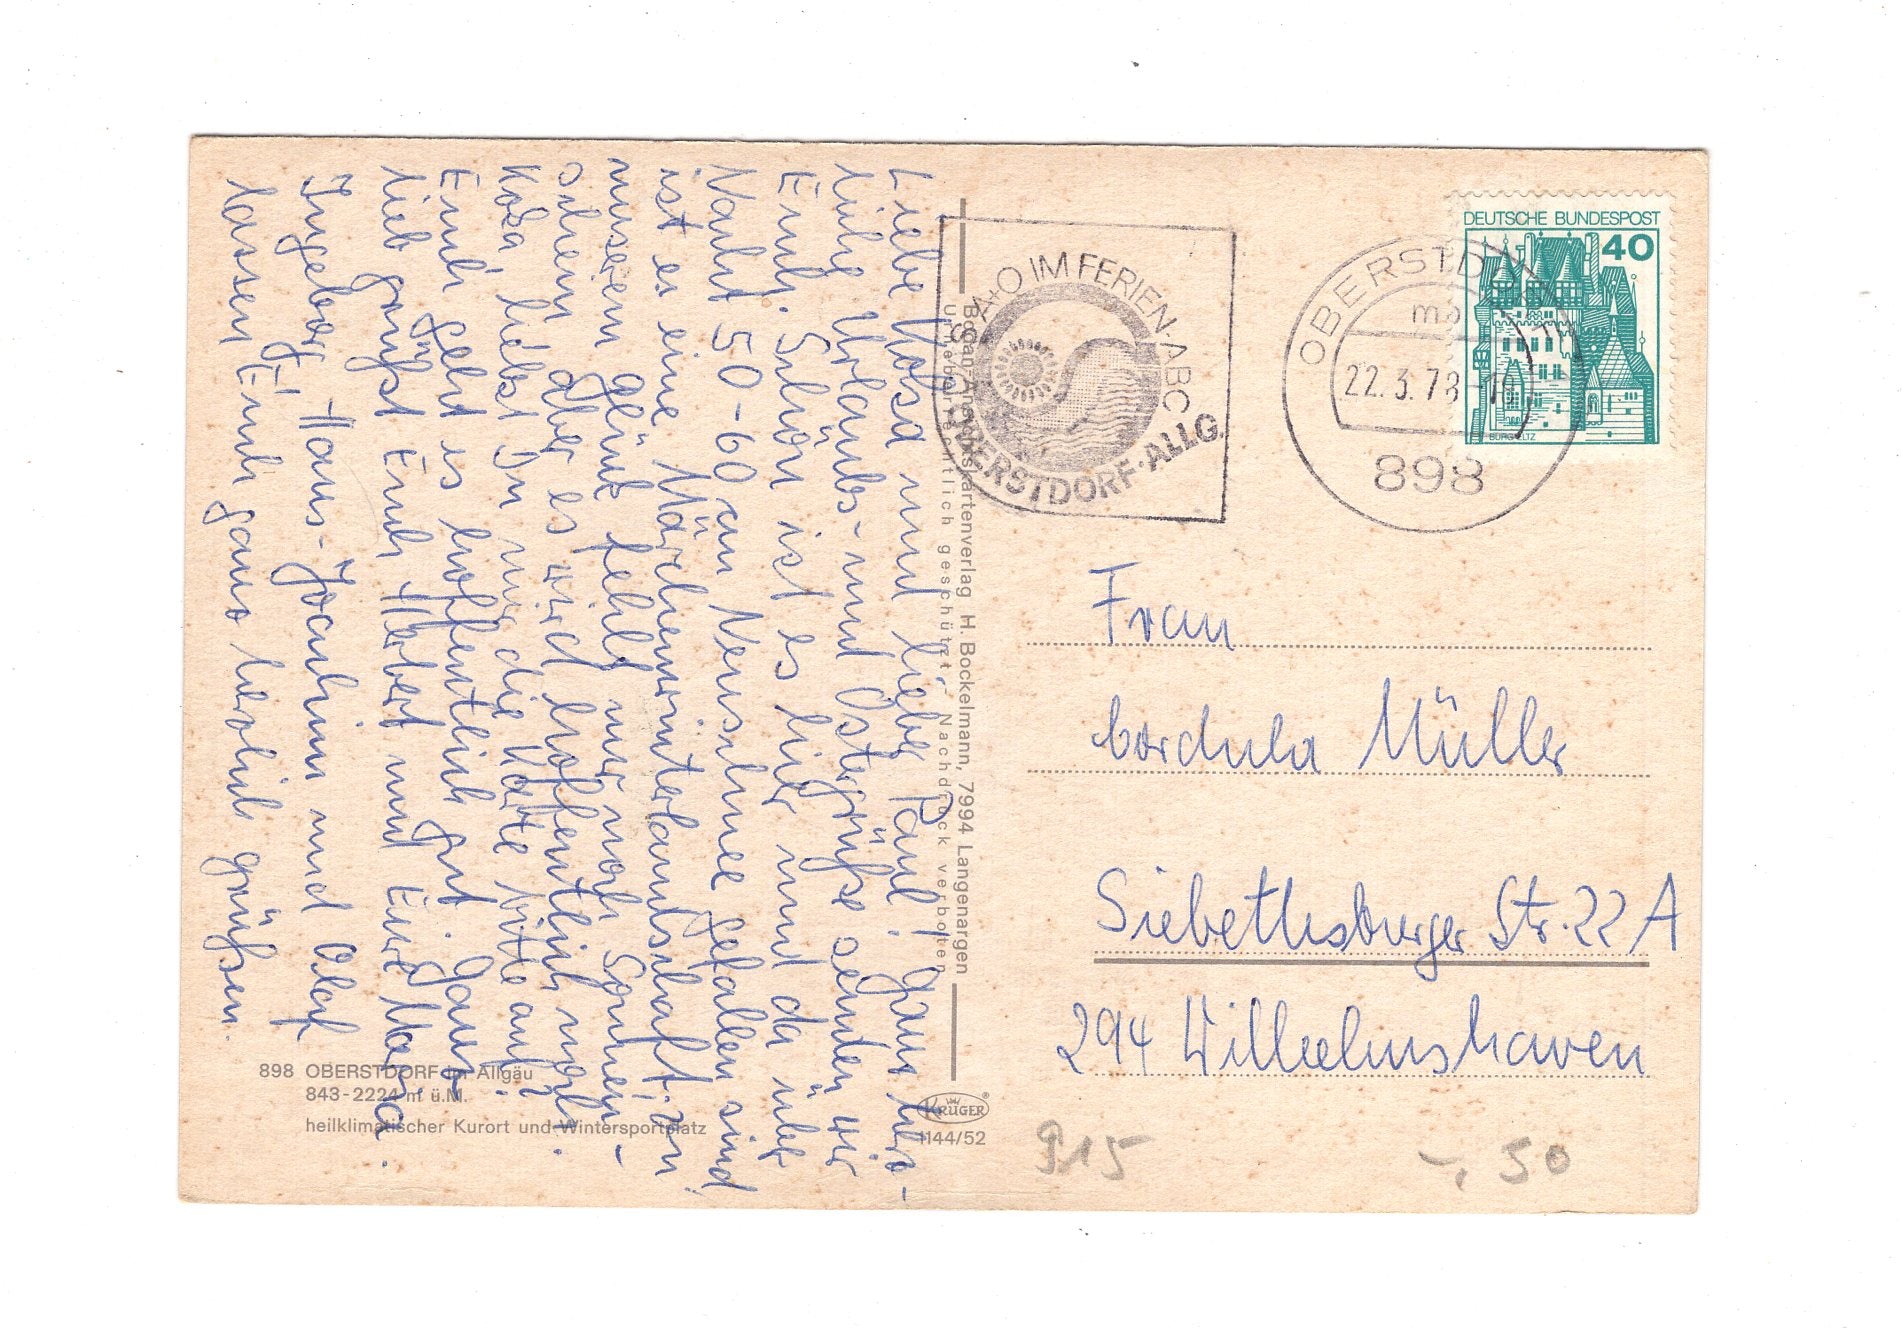 Liebe Kosa und lieber Paul! Ganz herz-
liche Urlaubs- und Ostergrüße senden wir
Euch. Schön ist es hier und da über
Nacht 50-60 cm Neuschnee gefallen sind
ist es eine Märchenwinterlandschaft. Zu
unserem Glück fehlt nur noch Sonnen-
schein aber es wird hoffentlich noch.
Kosa hebst Du mir die Karte bitte auf?
Euch geht es hoffentlich gut. Ganz
lieb grüßt Euch Herbert und Eure Maria.
Ingeborg, Hans-Joachim und Olaf
lassen Euch ganz herzlich grüßen.
898 OBERSTDORF im Allgäu
843-2224 m ü.M.
heilklimatischer Kurort und Wintersportplatz
Bodan-Ansichtskartenverlag H. Bockelmann, 7994 Langenargen
Urheberrechtlich geschützt, Nachdruck verboten
KRÜGER
1144/52
DAS A+O IM FERIEN-ABC
OBERSTDORF·ALLG.
OBERSTDORF
22.3.78-18
898
DEUTSCHE BUNDESPOST
40
BURG ELTZ
Frau
Cordula Müller
Siebethsburger Str. 22 A
294 Wilhelmshaven
915
-,50